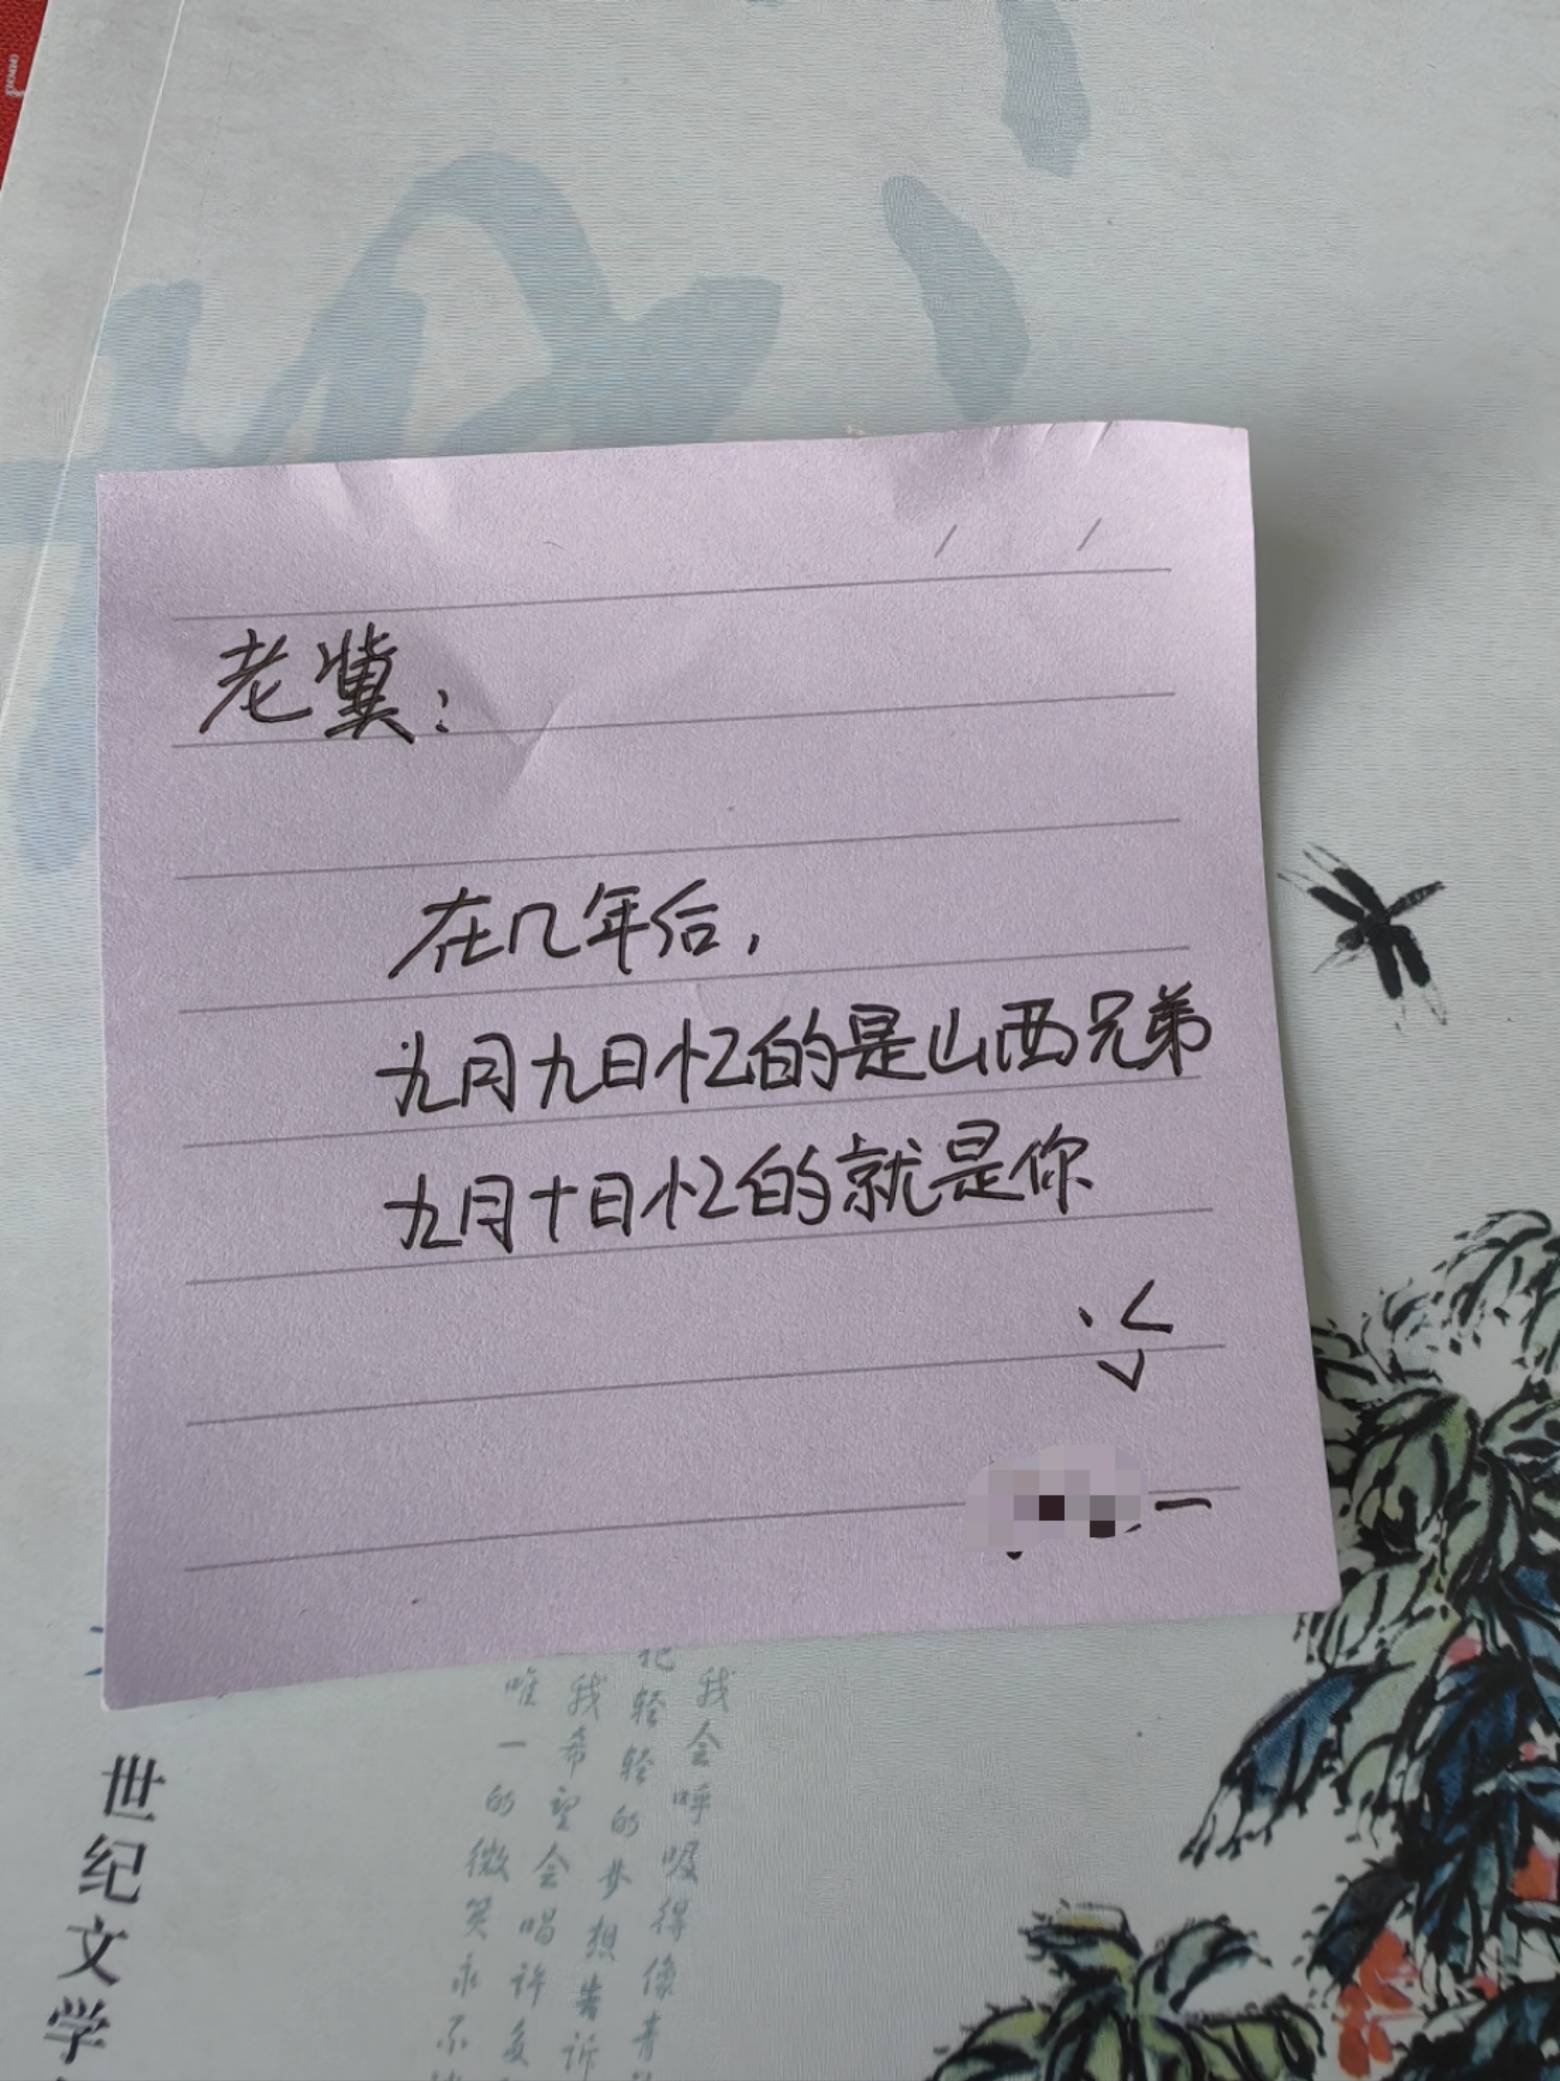 老冀：
在几年后，
九月九日忆的是山西兄弟
九月十日忆的就是你
世纪文学
我会呼吸得像青
轻轻的步想告诉
我希望会唱许多
唯一的微笑永不